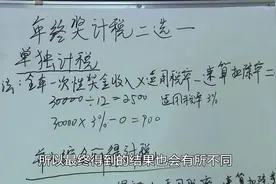 年终奖计税二选一
单独计税
法:全年一次性奖金收入×适用税率-速算扣除率=
30000÷12=2500 适用税率3%
30000×3%-0=900
所以最终得到的结果也会有所不同